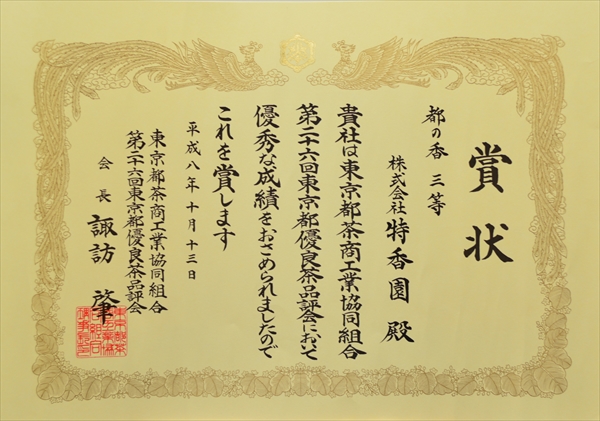 賞状
都の香 三等
株式会社 特香園 殿
貴社は東京都茶商工業協同組合
第二十六回東京都優良茶品評会において
優秀な成績をおさめられましたので
これを賞します
平成八年十月十三日
東京都茶商工業協同組合
第二十六回東京都優良茶品評会
会長 諏訪 肇